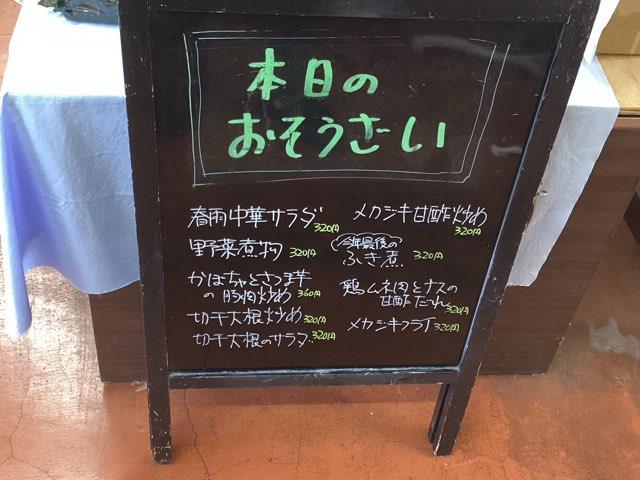 本日の
おそうざい
春雨中華サラダ 320円
野菜煮物 320円
かぼちゃとさつま芋
の豚肉炒め 360円
切干大根炒め 320円
切干大根のサラダ 320円
メカジキ甘酢炒め
320円
今年最後の
ふき煮 320円
鶏ムネ肉とナスの
甘酢だれ 320円
メカジキフライ 320円